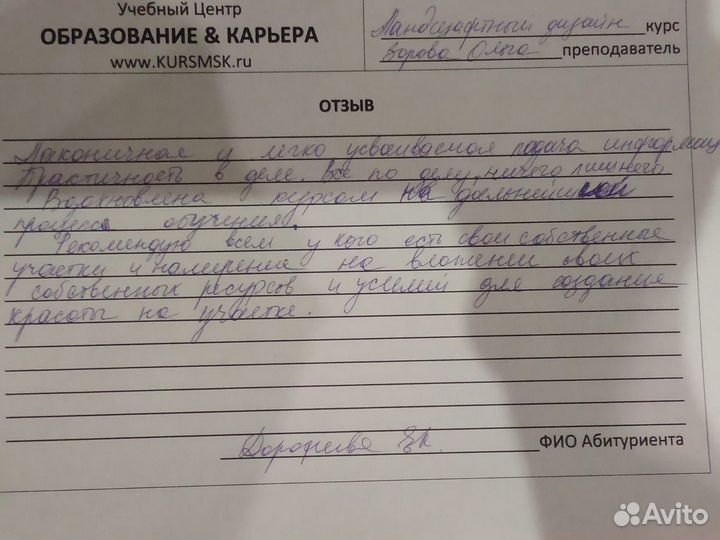 Учебный Центр
ОБРАЗОВАНИЕ & КАРЬЕРА
www.KURSMSK.ru
Ландшафтный дизайн курс
Зорова Ольга преподаватель
ОТЗЫВ
Лаконичная и легко усваиваемая подача информац
Практичность в деле. Все по делу, ничего лишнего
Вдохновлена курсом на дальнейший
процесс обучения.
Рекомендую всем у кого есть свои собственные
участки и намерение на вложении своих
собственных ресурсов и усилий для создания
красоты на участке.
Дорофеева ФИО Абитуриента
Avito